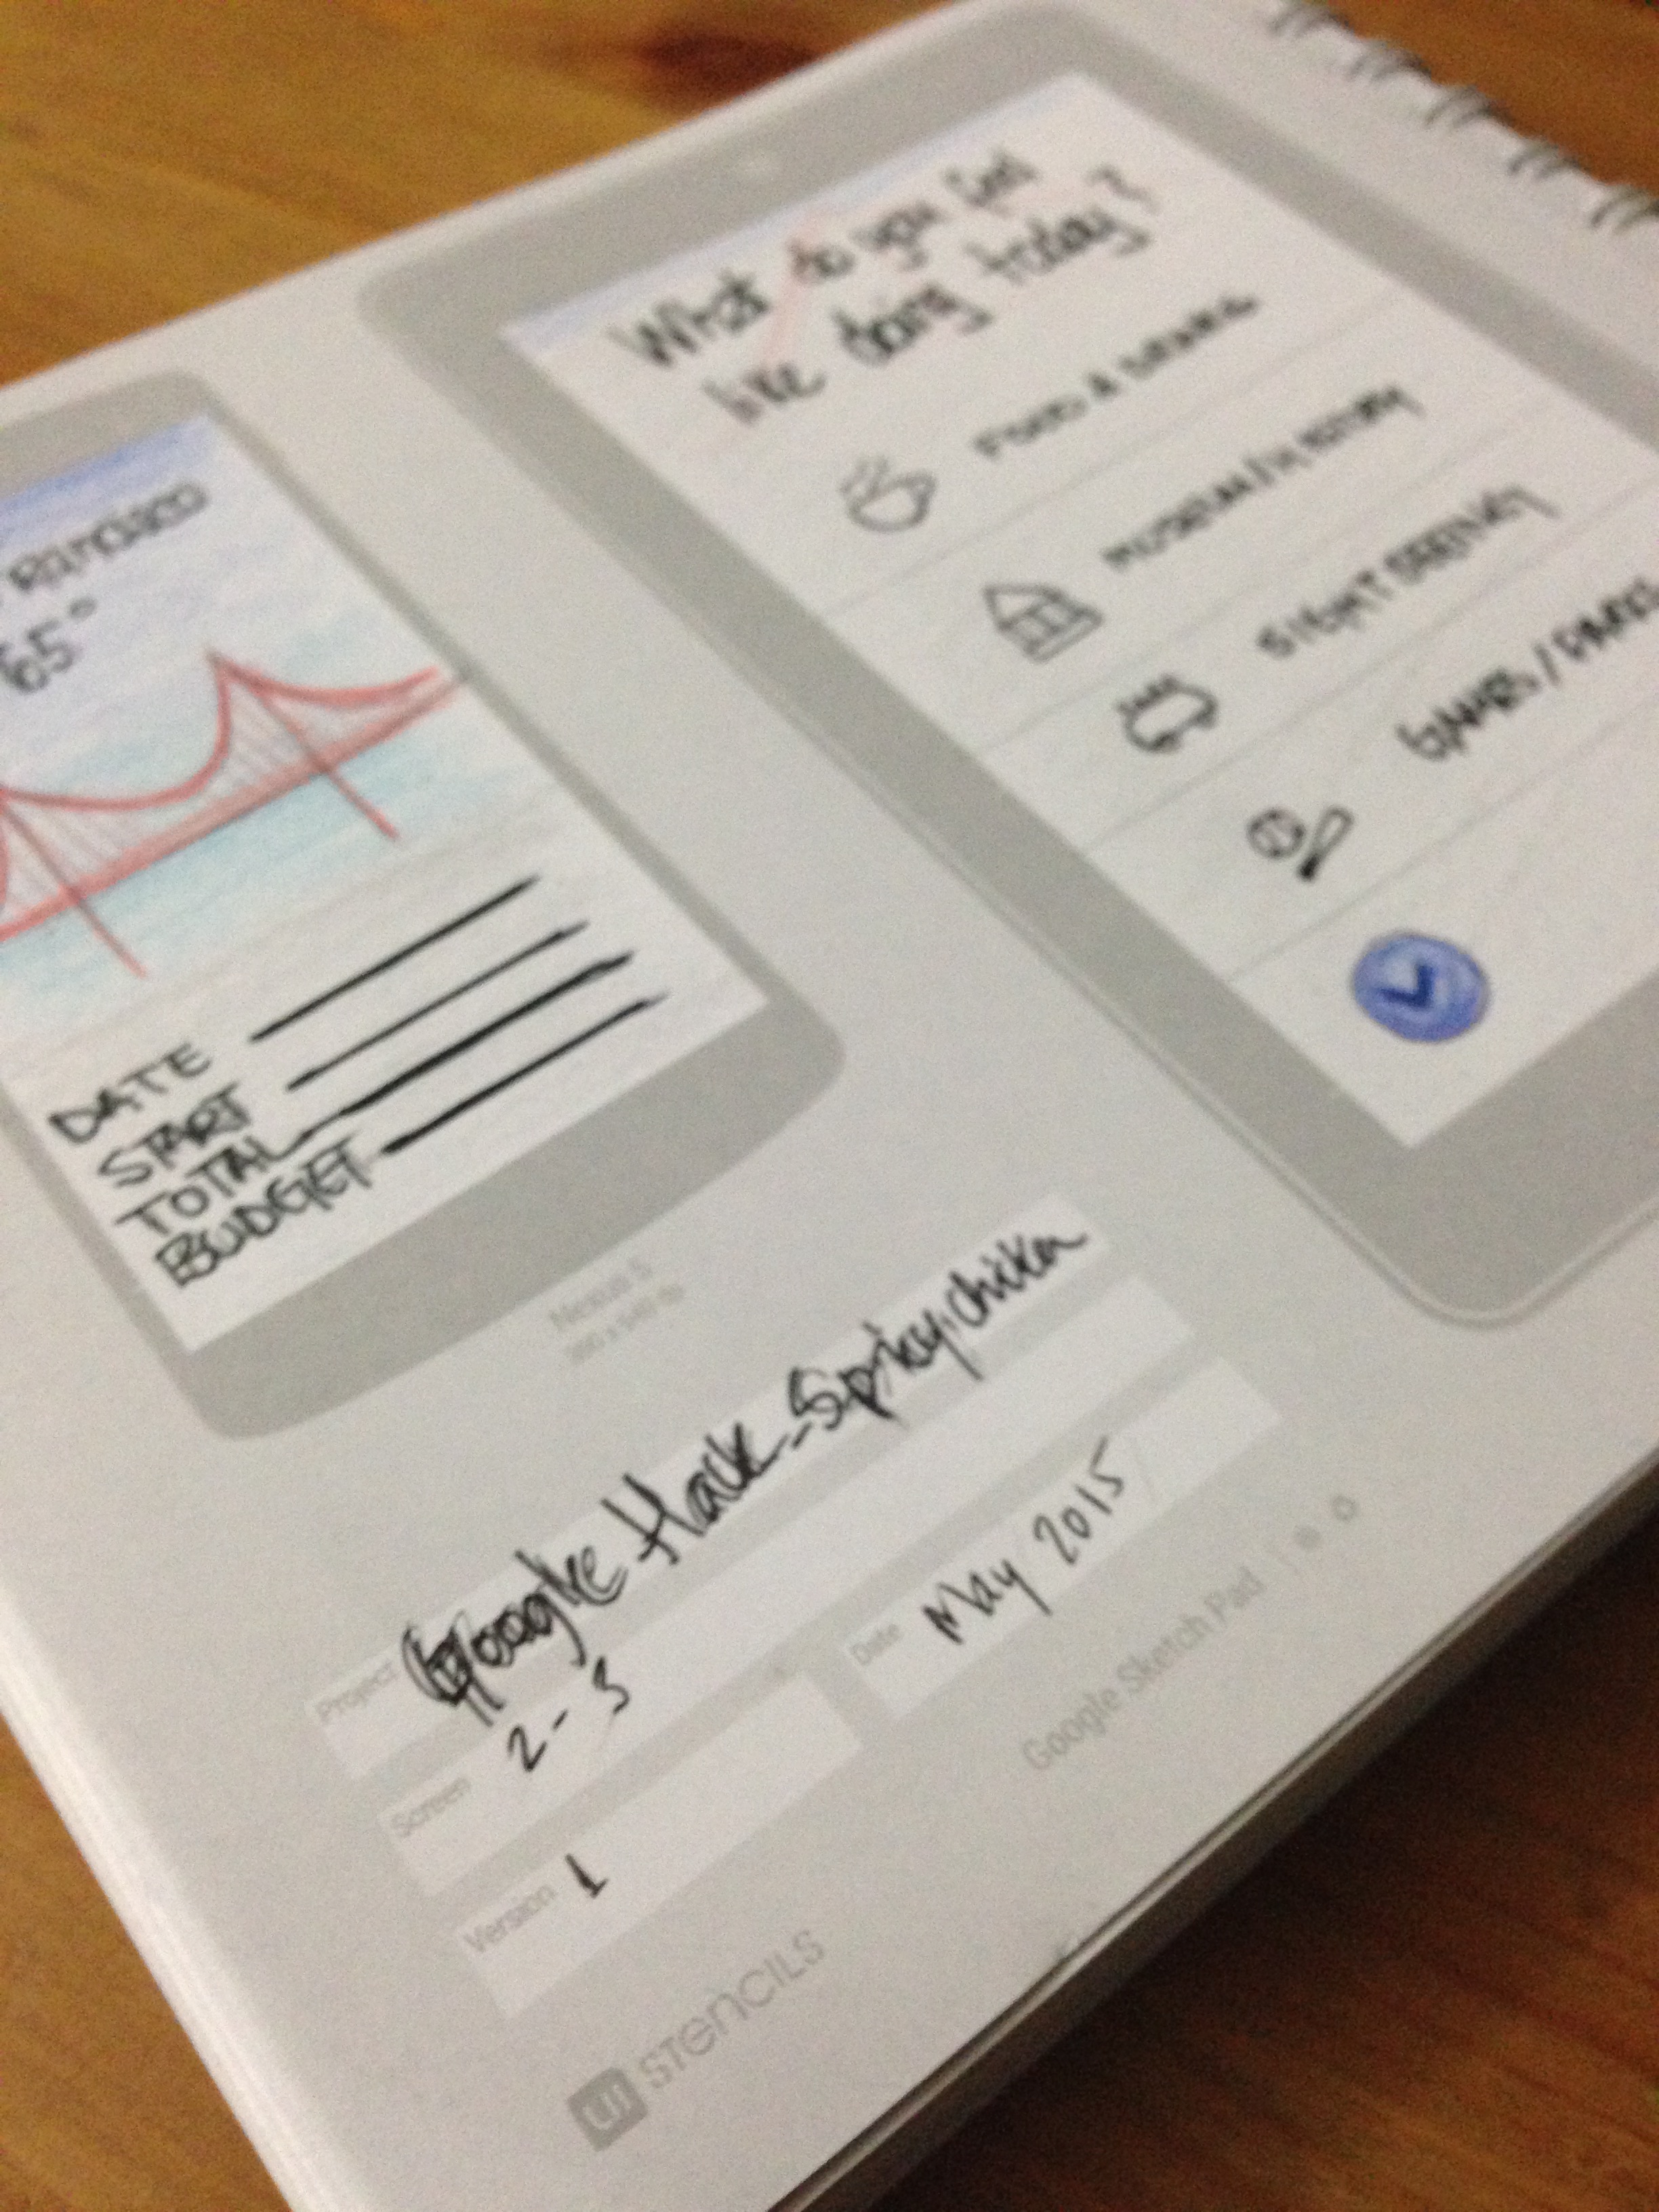 Francisco
65°
DATE
START
TOTAL
BUDGET
What do you feel
like doing today?
FOOD & DRINKS
MUSEUM/HISTORY
SIGHT SEEING
GAMES/PARKS
Nexus 5
Project Google Hack_Spicy chicken
Screen 2-3
Version 1
Date May 2015
Google Sketch Pad
UI STENCILS